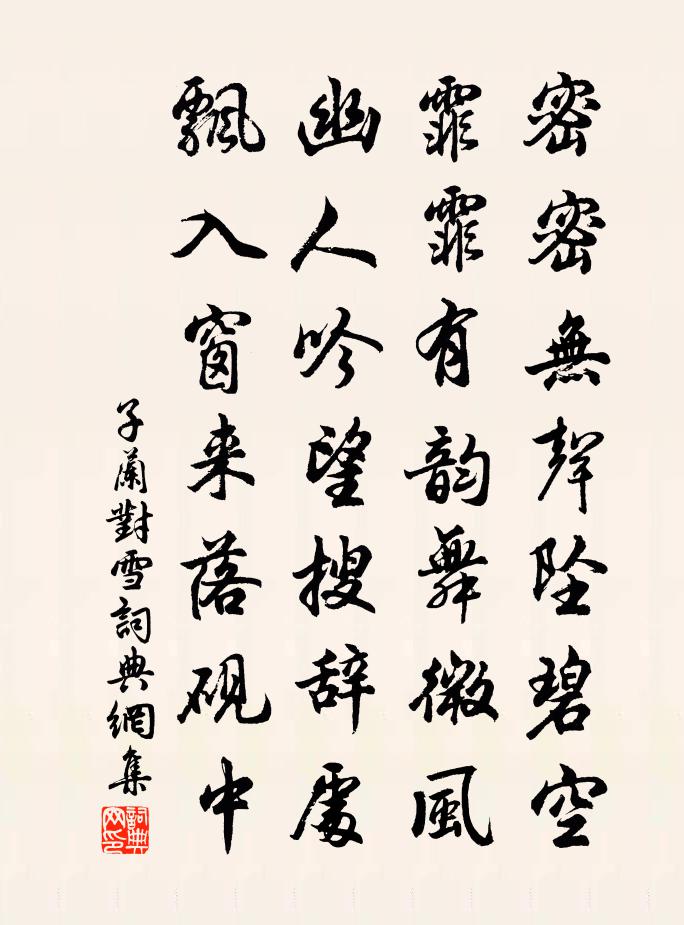 密密無聲坠碧空
霏霏有韵舞微風
幽人吟望搜辞處
飄入窗来落砚中
子蘭對雪詞典網集
詞典網印